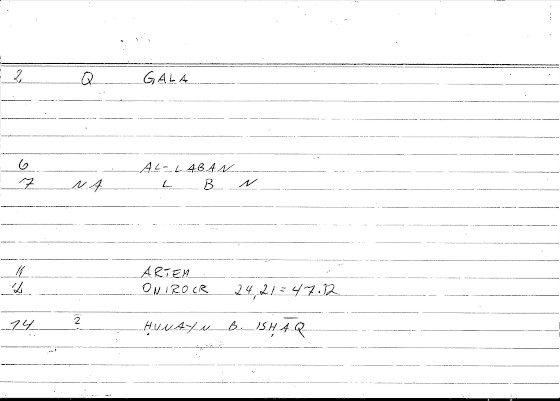 2 Q GALA
6 AL-LABAN
7 NA L B N
11 ARTEM
12 ONIROCR 24,21 = 47.12
14 2 ḤUNAYN B. ISḤĀQ